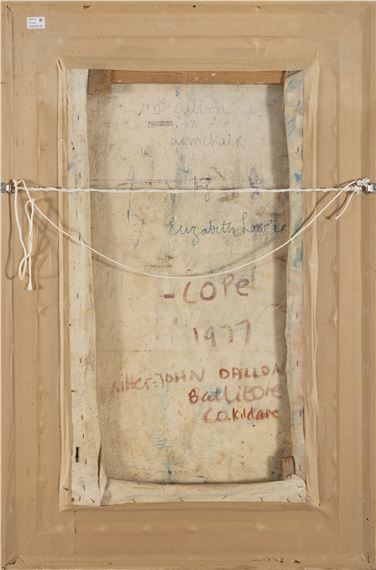 in an
armchair
by
Elizabeth Lawler
-COPE
1977
sitter: JOHN DALLON
Ballitore
Co. Kildare